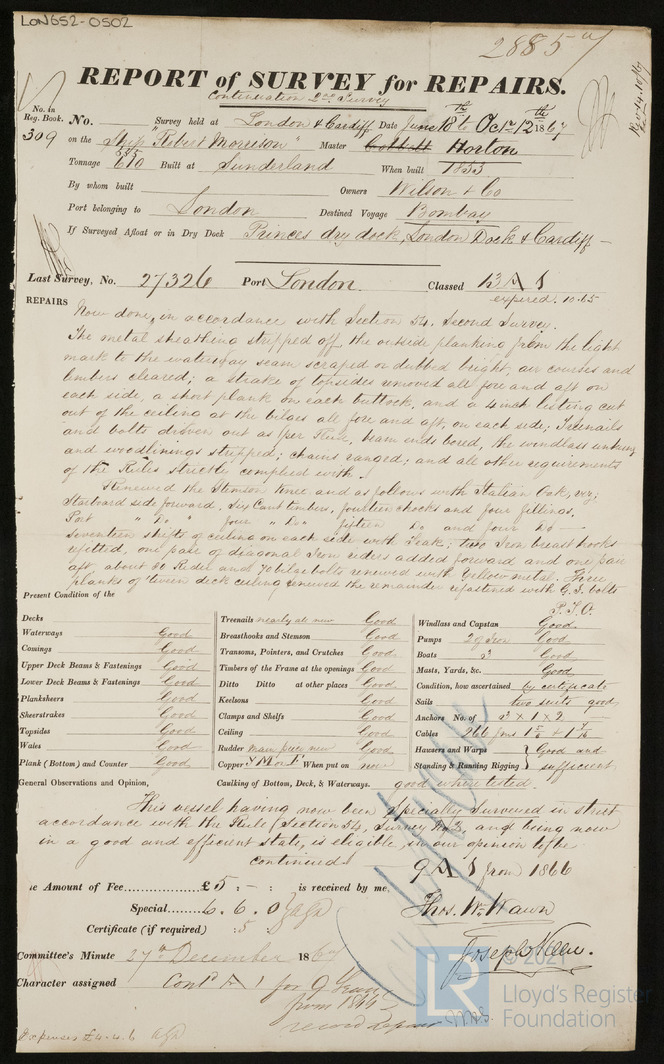 LON652-0502
2885
REPORT of SURVEY for REPAIRS.
Continuation 2nd Survey
Recd 4.10/67
No. in Reg. Book. No. Survey held at London & Cardiff Date June 18th to Octr 12th 1867
309 on the Ship "Robert Morrison" Master Horton
Tonnage 610 Built at Sunderland When built 1853
By whom built Owners Wilson & Co
Port belonging to London Destined Voyage Bombay
If Surveyed Afloat or in Dry Dock Princes dry dock, London Dock & Cardiff —
Last Survey, No. 27326 Port London. Classed 13 A 1
expired. 10.65
REPAIRS Now done, in accordance with Section 54. Second Survey.
The metal sheathing stripped off the outside planking from the light
mark to the waterway seam, scraped or dubbed bright, air courses and
limbers cleared; a strake of topsides removed all fore and aft on
each side, a short plank on each buttock, and a 4 inch listing cut
out of the ceiling at the bilges all fore and aft, on each side; Treenails
and bolts driven out as per Rule, beam ends bored, the windlass unhung
and woodlinings stripped; chains ranged; and all other requirements
of the Rules strictly complied with.
Renewed the Stemson knee, and as follows with Italian Oak, viz;
Starboard side forward, Six Cant timbers, fourteen chocks and four fillings.
Port " Do " four " Do " fifteen Do and four Do —
Seventeen shifts of ceiling on each side with Teak; two Iron breasthooks
refitted, one pair of diagonal Iron riders added forward and one pair
aft, about 30 Rider and 70 bilge bolts renewed with Yellow metal. Three
planks of 'tween deck ceiling renewed the remainder refastened with G.I. bolts
P.T.O.
Present Condition of the
Decks
Waterways Good
Comings Good
Upper Deck Beams & Fastenings Good
Lower Deck Beams & Fastenings Good
Planksheers Good
Sheerstrakes Good
Topsides Good
Wales Good
Plank (Bottom) and Counter Good
Treenails nearly all new Good
Breasthooks and Stemson Good
Transoms, Pointers, and Crutches Good
Timbers of the Frame at the openings Good
Ditto Ditto at other places Good
Keelsons Good
Clamps and Shelfs Good
Ceiling Good
Rudder main piece new Good
Copper YM & F When put on now
Caulking of Bottom, Deck, & Waterways. good when tested.
Windlass and Capstan Good.
Pumps 2 of Iron Good
Boats 3 Good
Masts, Yards, &c. Good
Condition, how ascertained by certificate
Sails two suits good
Anchors No. of 3 x 1 x 2
Cables 266 fms 1 5/8 + 1 7/16
Hausers and Warps } Good and
Standing & Running Rigging } sufficient
General Observations and Opinion,
This vessel having now been Specially Surveyed in strict
accordance with the Rule (Section 54, Survey No 2, and being now
in a good and efficient state, is eligible, in our opinion to be
continued 9 A 1 from 1866
he Amount of Fee............... £5 : - : is received by me,
Special........ 6. 6. 0
Certificate (if required) : 5
Thos. Wm. Wawn
Joseph
Committee's Minute 27th December 1867
Character assigned Contd A 1 for 9 Years
from 1866
record
Expenses £4.4.6
LR
© 2021
Lloyd's Register
Foundation